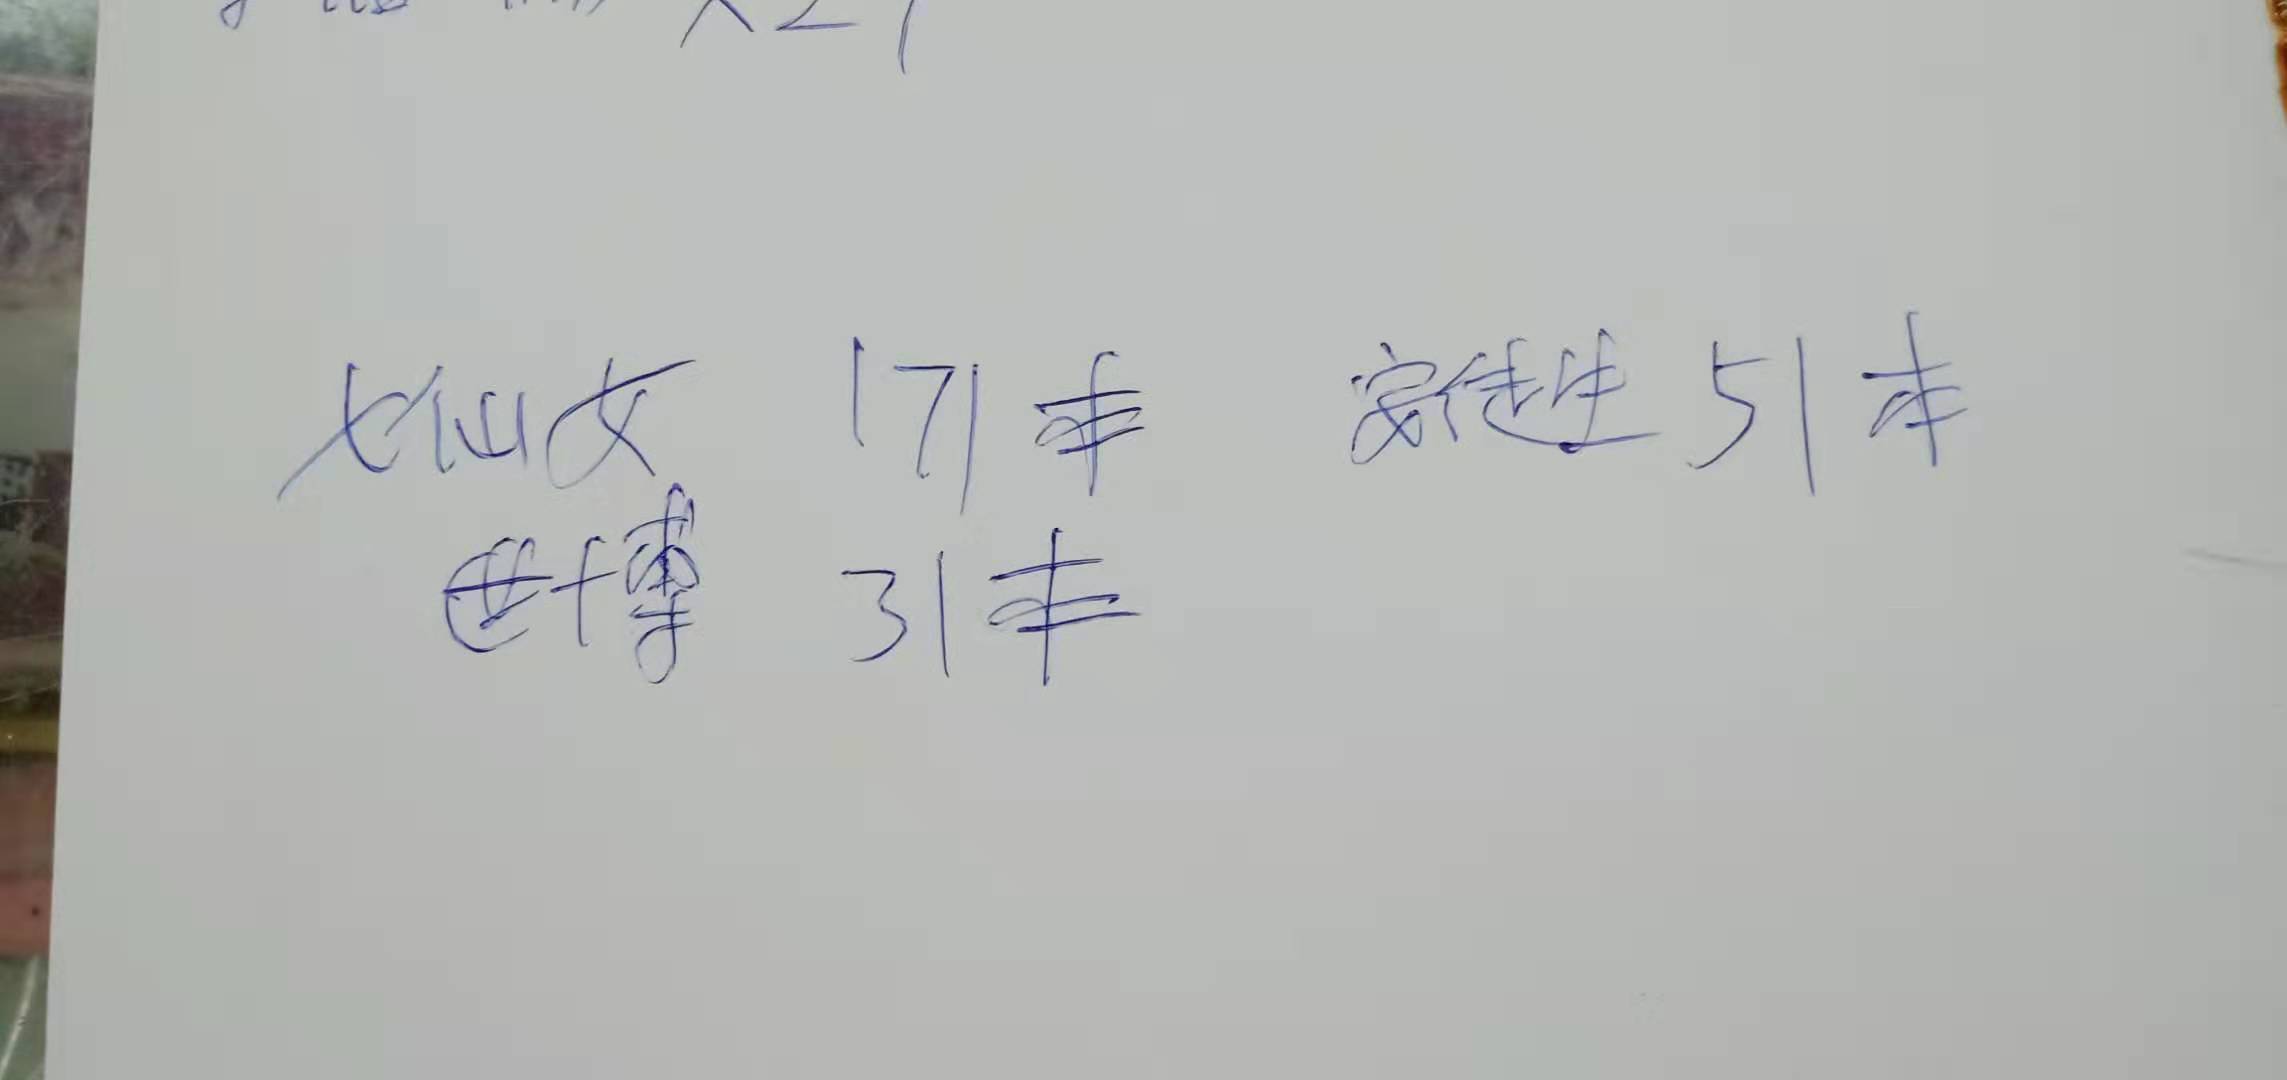 七仙女 171本 安徒生 51本
世博 31本